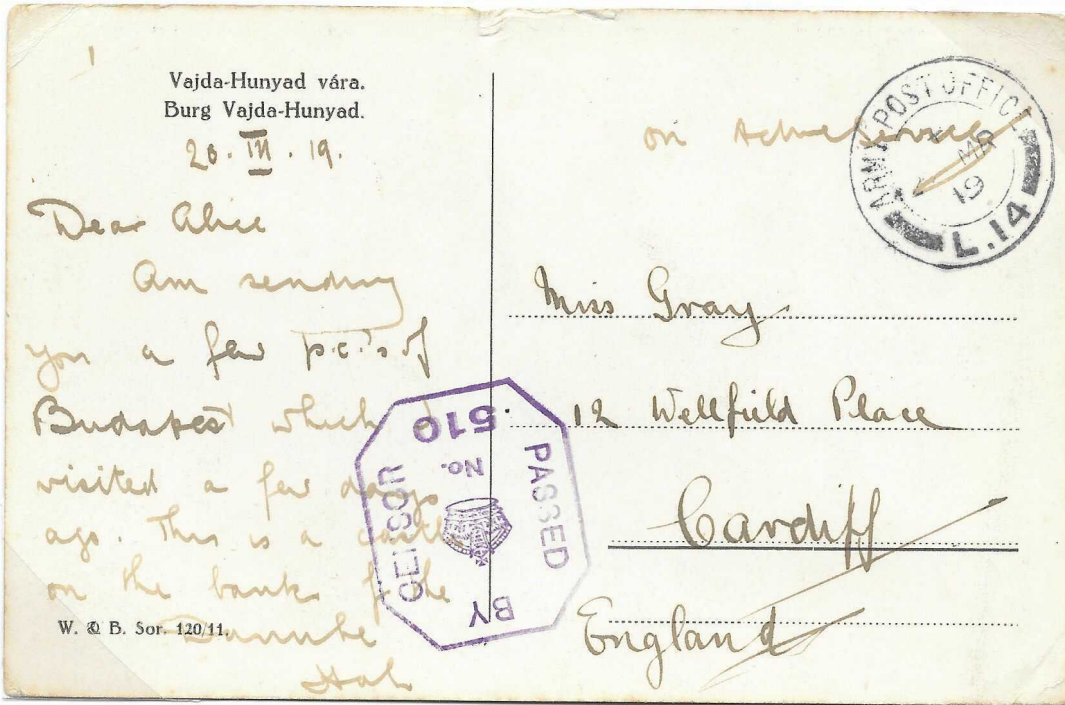 Vajda-Hunyad vára.
Burg Vajda-Hunyad.
20. III. 19.
Dear Alice
Am sending
you a few p.c.'s of
Budapest which I
visited a few days
ago. This is a castle
on the bank of the
Danube
W. & B. Sor. 120/11.
on Active Service
ARMY POST OFFICE
MR
19
L.14
Miss Gray
12 Wellfield Place
Cardiff
England
PASSED
BY
CENSOR
No.
510